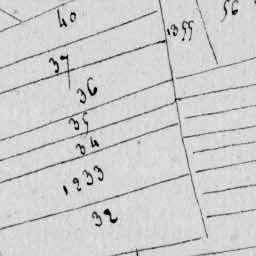 40
56
1355
37
36
35
34
1233
32